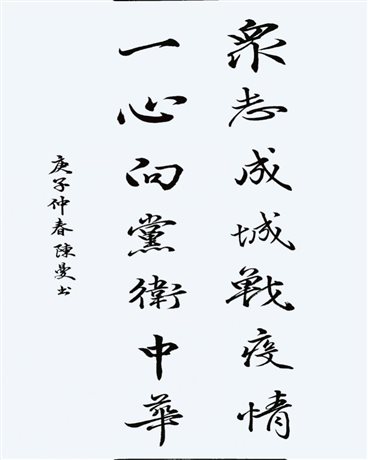 眾志成城戰疫情
一心向黨衛中華
庚子仲春陳曼书